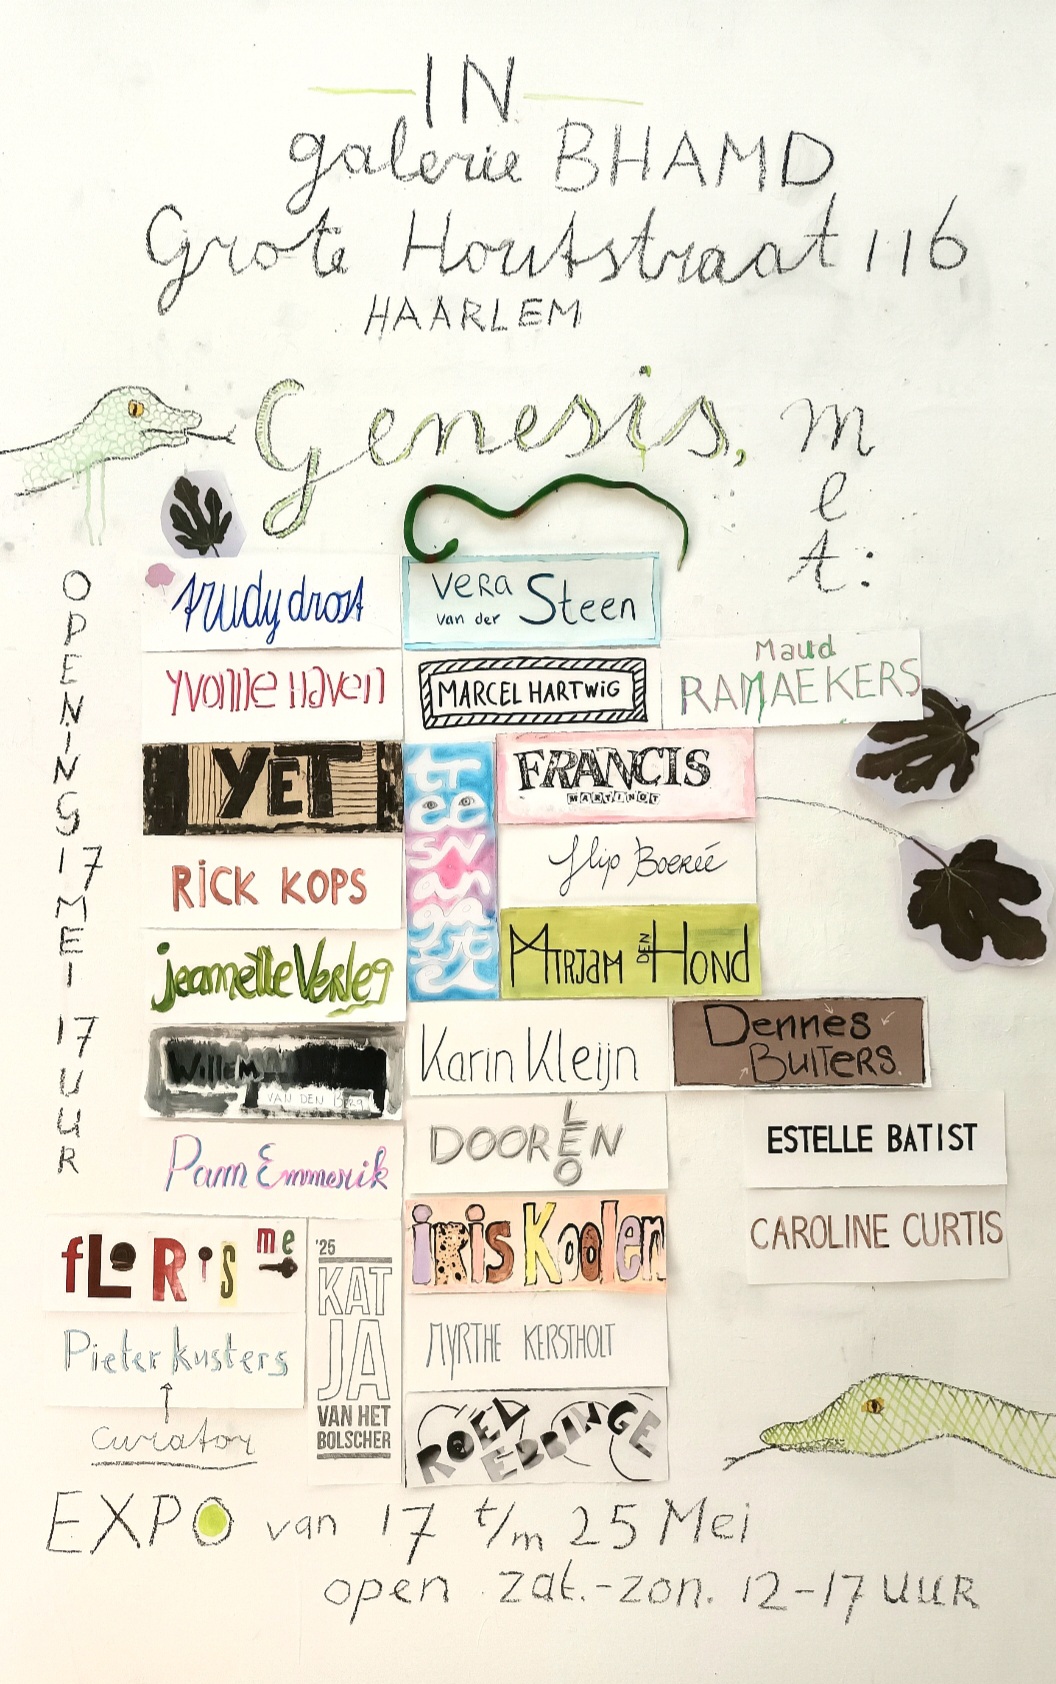 IN
galerie BHAMD
Grote Houtstraat 116
HAARLEM
Genesis, met:
OPENING 17 MEI 17 UUR
trudy drost
Vera van der Steen
Yvonne Haven
MARCEL HARTWiG
Maud RAMAEKERS
YET
FRANCIS
MARTINOT
RiCK KOPS
flip Boereé
jeannette Verleg
MIRJaM DEN HOND
Willem
VAN DEN Berg
Karin Kleijn
Dennes BuiTERS.
Pam Emmerik
DOOREN
LEO
ESTELLE BATIST
fLoRis me
iRis Koolen
CAROLINE CURTIS
Pieter kusters
curator
'25
KAT
JA
VAN HET
BOLSCHER
MYRTHE KERSTHOLT
ROEL EBBINGE
EXPO van 17 t/m 25 Mei
open zat.-zon. 12-17 UUR